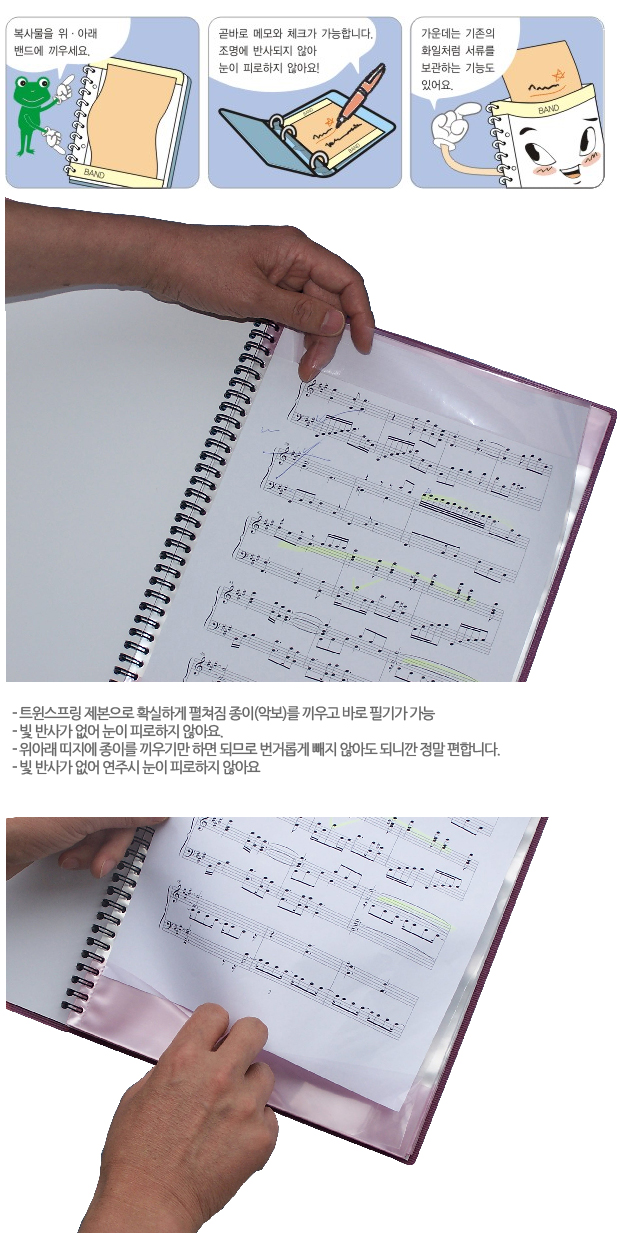 복사물을 위 · 아래
밴드에 끼우세요.
BAND
곧바로 메모와 체크가 가능합니다.
조명에 반사되지 않아
눈이 피로하지 않아요!
BAND
BAND
가운데는 기존의
화일처럼 서류를
보관하는 기능도
있어요.
BAND
- 트윈스프링 제본으로 확실하게 펼쳐짐 종이(악보)를 끼우고 바로 필기가 가능
- 빛 반사가 없어 눈이 피로하지 않아요.
- 위아래 띠지에 종이를 끼우기만 하면 되므로 번거롭게 빼지 않아도 되니깐 정말 편합니다.
- 빛 반사가 없어 연주시 눈이 피로하지 않아요